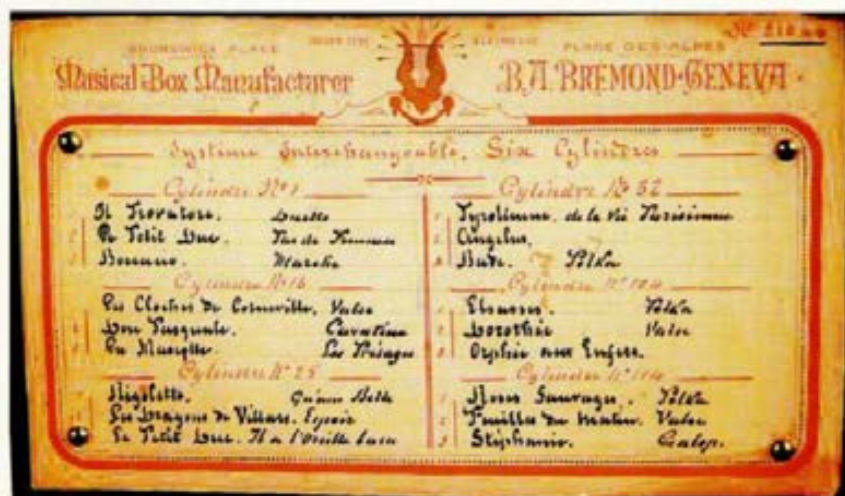 BRUNSWICK PLACE
PLACE DES ALPES
Musical Box Manufacturer
B.A. BREMOND-GENEVA
Systême Interchangeable, Six Cylindres
Cylindre Nº 1
1 Il Trovatore.
2 Le Petit Duc.
3 Boccace. Marche
Cylindre Nº 16
1 Les Cloches de Corneville. Valse
2 Don Pasquale. Cavatine
3 La Mascotte. Les Présages
Cylindre Nº 28
1 Rigoletto.
2 Les Dragons de Villars. Espoir
3 Le Petit Duc. Il a l'Oreille basse
Cylindre Nº 52
1 Tyrolienne. de la Vie Parisienne
2 Angelus.
3 Polka
Cylindre Nº 104
1 Polka
2 Dorothée Valse
3 Orphée aux Enfers.
Cylindre Nº
1 Roses Sauvages. Polka
2 Feuilles du Matin. Valse
3 Stéphanie. Galop.